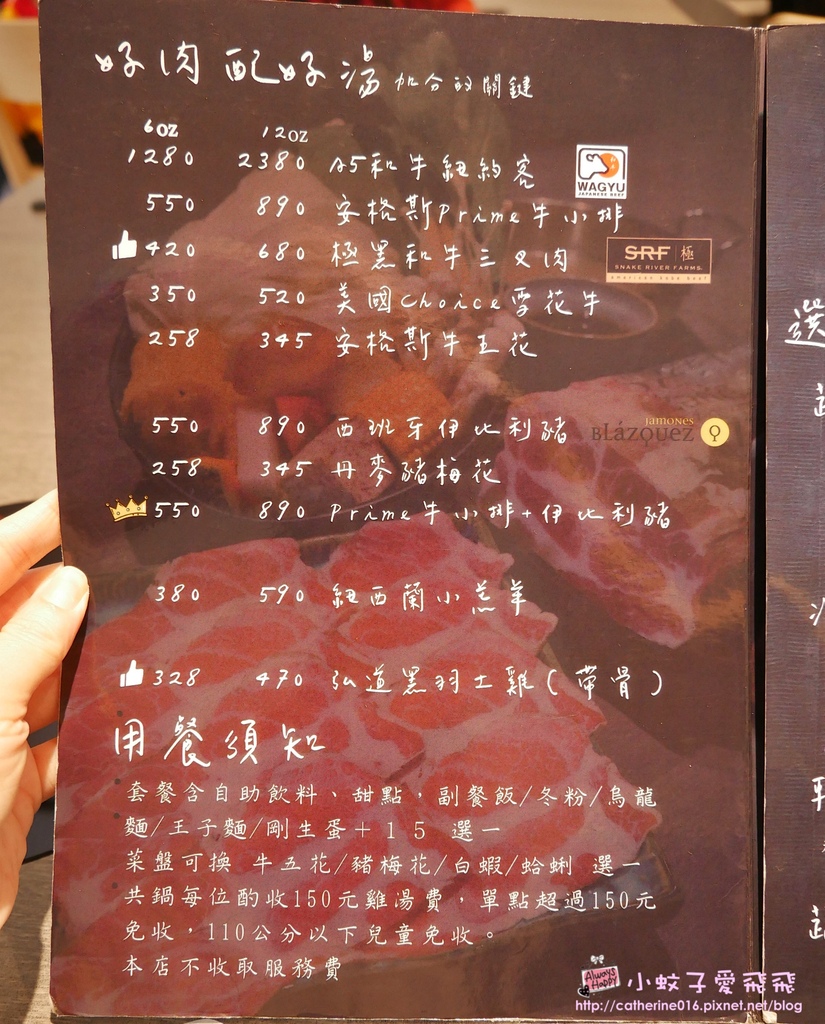 好肉配好湯 加分的關鍵
6oz 12oz
1280 2380 A5和牛紐約客
WAGYU
JAPANESE BEEF
550 890 安格斯Prime牛小排
420 680 極黑和牛三叉肉
SRF 極
SNAKE RIVER FARMS.
american kobe beef
350 520 美國Choice雪花牛
258 345 安格斯牛五花
550 890 西班牙伊比利豬
jamones
BLÁZQUEZ
258 345 丹麥豬梅花
550 890 Prime牛小排+伊比利豬
380 590 紐西蘭小羔羊
328 470 弘道黑羽土雞(帶骨)
用餐須知
套餐含自助飲料、甜點,副餐飯/冬粉/烏龍
麵/王子麵/剛生蛋+15 選一
菜盤可換 牛五花/豬梅花/白蝦/蛤蜊 選一
共鍋每位酌收150元雞湯費,單點超過150元
免收,110公分以下兒童免收。
本店不收取服務費
選
Always Happy
小蚊子愛飛飛
http://catherine016.pixnet.net/blog